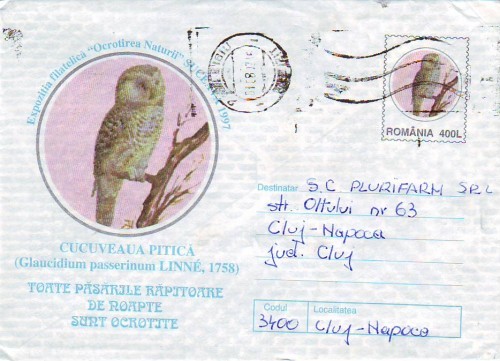 Expoziția filatelică "Ocrotirea Naturii" SUCEAVA 1997
ROMÂNIA 400L
Destinatar S.C PLURIFARM SRL
str. Oltului nr 63
Cluj-Napoca
jud. Cluj
CUCUVEAUA PITICĂ
(Glaucidium passerinum LINNÉ, 1758)
TOATE PĂSĂRILE RĂPITOARE
DE NOAPTE
SUNT OCROTITE
Codul Localitatea
3400 Cluj-Napoca